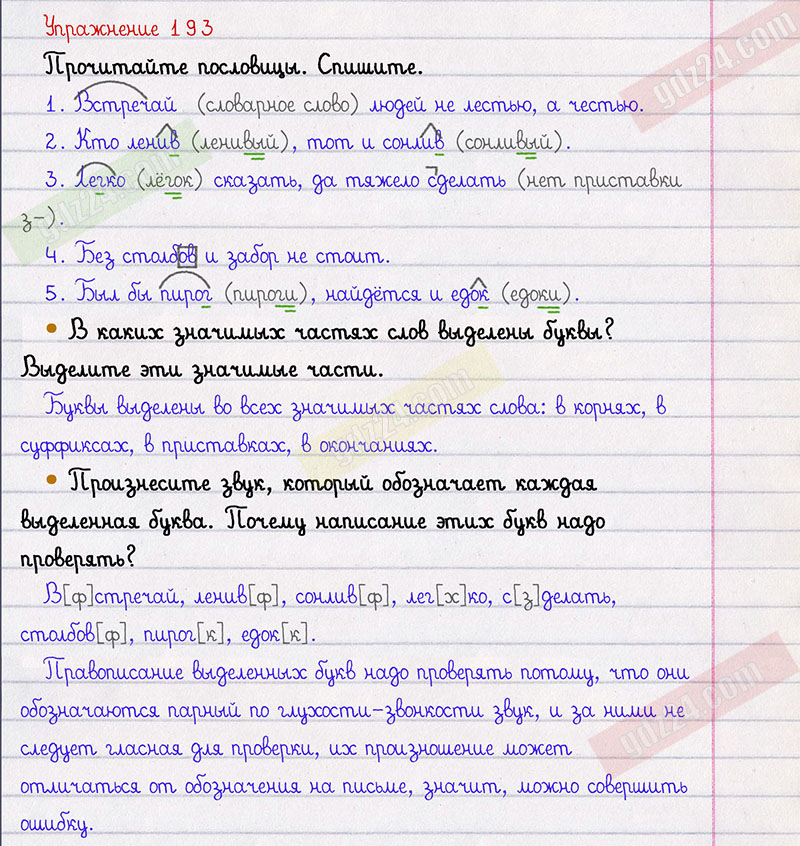 Упражнение 193
Прочитайте пословицы. Спишите.
1. Встречай (словарное слово) людей не лестью, а честью.
2. Кто ленив (ленивый), тот и сонлив (сонливый).
3. Легко (лёгок) сказать, да тяжело сделать (нет приставки
з-).
4. Без столбов и забор не стоит.
5. Был бы пирог (пироги), найдётся и едок (едоки).
• В каких значимых частях слов выделены буквы?
Выделите эти значимые части.
Буквы выделены во всех значимых частях слова: в корнях, в
суффиксах, в приставках, в окончаниях.
• Произнесите звук, который обозначает каждая
выделенная буква. Почему написание этих букв надо
проверять?
В[ф]стречай, ленив[ф], сонлив[ф], лег[х]ко, с[з]делать,
столбов[ф], пирог[к], едок[к].
Правописание выделенных букв надо проверять потому, что они
обозначаются парный по глухости-звонкости звук, и за ними не
следует гласная для проверки, их произношение может
отличаться от обозначения на письме, значит, можно совершить
ошибку.
gdz24.com
gdz24.com
gdz24.com
gdz24.com